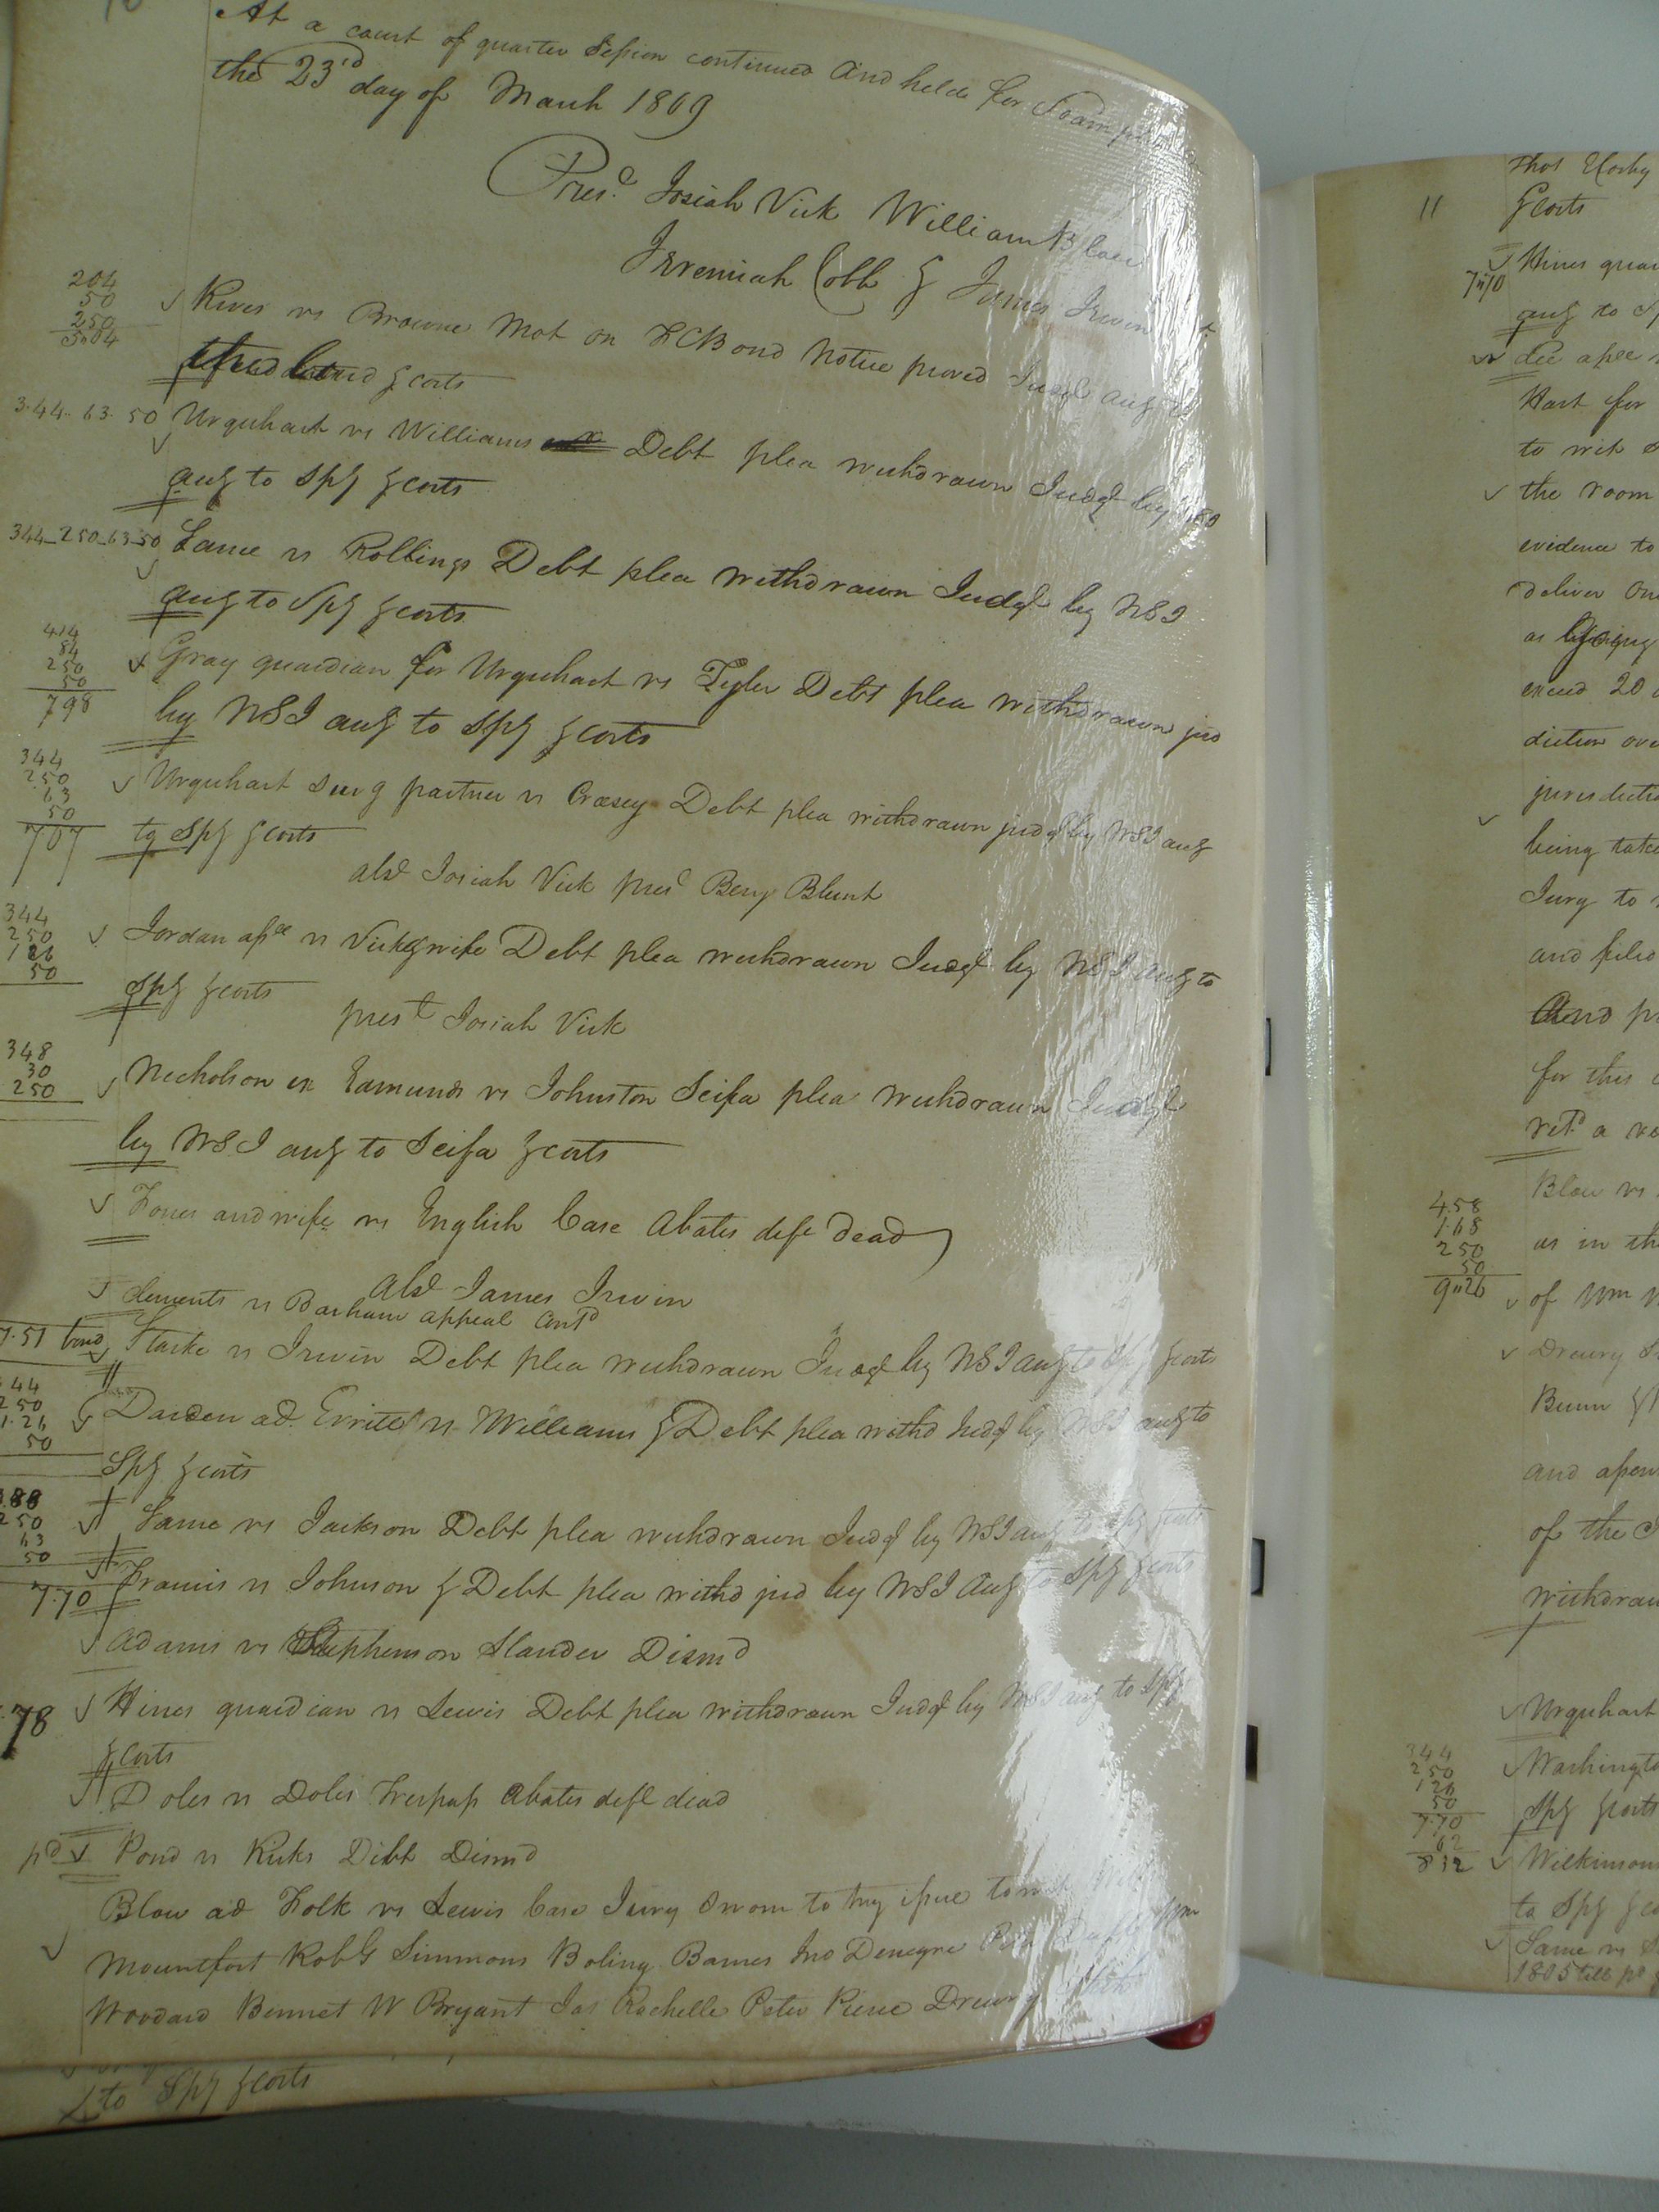 At a court of quarter Session continued and held for
the 23rd day of March 1809
Pres.t Josiah Vick William Blow
Jeremiah Cobb & James Irwin
204
50
250
5.04
Rives vs Browne Mot on FCBond Notice proved Judgt
& costs
3.44.. 63. 50 Urquhart vs Williams Debt plea withdrawn Judgt by
acc to Spy & costs
344_250_63_50 Same vs Rollings Debt plea withdrawn Judgt by NSI
acc to Spy & costs
414
84
250
50
798
Gray guardian for Urquhart vs Tyler Debt plea withdrawn jud
by NSI acc to Spy & costs
344
250
63
50
707
Urquhart surg partner vs Crasey Debt plea withdrawn judgt by NSI acc
to Spy & costs
abst Josiah Vick prest Benj Blunt
344
250
126
50
Jordan assee vs Vick & wife Debt plea withdrawn Judgt by NSI acc to
Spy & costs
prest Josiah Vick
348
30
250
Nicholson ex Edmunds vs Johnston Scifa plea withdrawn Judgt
by NSI acc to Scifa & costs
Jones and wife vs English Case Abates deft dead
abst James Irwin
Clements vs Barham appeal contd
7.51 bond Starke vs Irwin Debt plea withdrawn Judgt by NSI acc to Spy & costs
44
250
1.26
50
Darden ad. vs Williams & Debt plea withd Judgt by NSI acc to
Spy & costs
388
250
63
50
Same vs Jackson Debt plea withdrawn Judgt by NSI acc to Spy & costs
7.70 Francis vs Johnson & Debt plea withd jud by NSI acc to Spy & costs
Adams vs Stephenson Slander Dismd
78 Hines guardian vs Lewis Debt plea withdrawn Judgt by NSI acc to Spy
& costs
Doles vs Doles Trespass abates deft dead
pd Pond vs Ricks Debt Dismd
Blow ad Folk vs Lewis Case Jury sworn to try issue to wit
Mountfort Robt Simmons Boling Barnes Jno Denegre Wm
Woodard Bennet W Bryant Jas Rochelle Peter Pierce Drewry
to Spy & costs
11
& costs
7.70 Hines guar
acc to Sp
Hart for
to wit
the room
evidence to
deliver
as
exceed 20
diction ove
jurisdicti
being take
Jury to
and filed
And p
for this
retd a
4.58
1.68
250
50
9.26
Blow vs
as in th
of Wm
Drewry
Bunn &
and assess
of the
withdraw
Urquhart
344
250
126
50
7.70
62
832
Washingto
Spy & costs
Wilkinson
to Spy & co
Same vs
1805 till pd